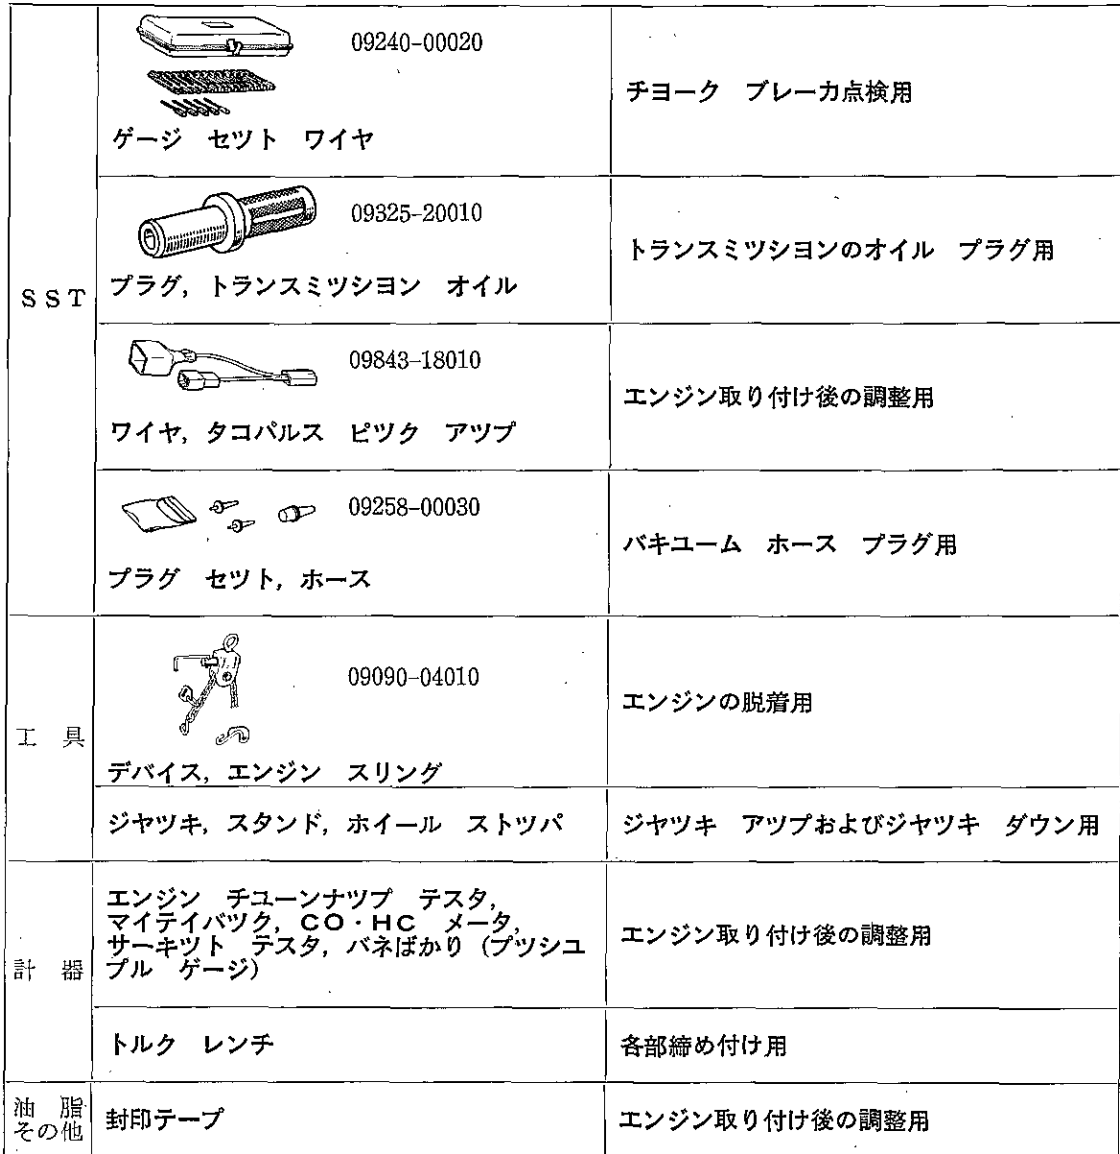 SST
09240-00020
ゲージ　セツト　ワイヤ
チヨーク　ブレーカ点検用
09325-20010
プラグ，トランスミツシヨン　オイル
トランスミツシヨンのオイル　プラグ用
09843-18010
ワイヤ，タコパルス　ピツク　アツプ
エンジン取り付け後の調整用
09258-00030
プラグ　セツト，ホース
バキユーム　ホース　プラグ用
工　具
09090-04010
デバイス，エンジン　スリング
エンジンの脱着用
ジヤツキ，スタンド，ホイール　ストツパ
ジヤツキ　アツプおよびジヤツキ　ダウン用
計　器
エンジン　チユーンナツプ　テスタ，
マイテイバツク，CO・HC　メータ，
サーキツト　テスタ，バネばかり（プツシユ
プル　ゲージ）
エンジン取り付け後の調整用
トルク　レンチ
各部締め付け用
油　脂
その他
封印テープ
エンジン取り付け後の調整用